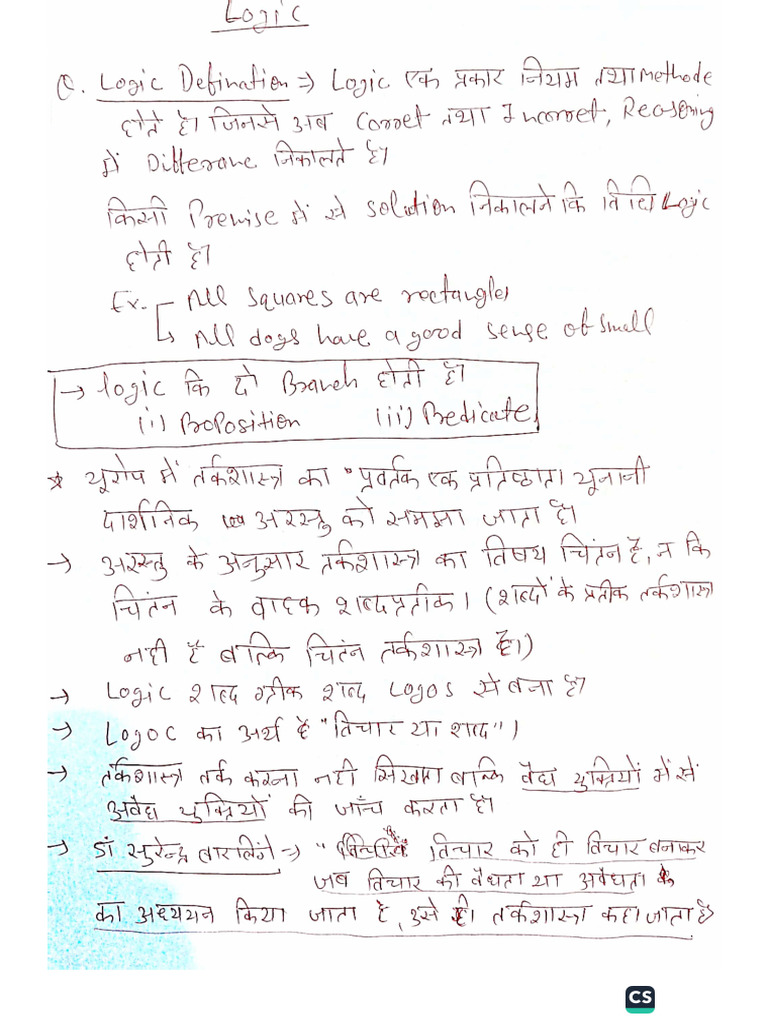 Logic
Q. Logic Defination ⇒ Logic एक प्रकार नियम तथा Methode
होते है। जिनसे अब Corret तथा Incorret, Reasoning
में Differane निकालते है।
किसी Premise में से solution निकालने कि विधि Logic
होती है।
Ex. All squares are rectangles
All dogs have a good sense of small
→ logic कि दो Branch होती है।
(i) Proposition (ii) Predicate
* यूरोप में तर्कशास्त्र का "प्रवर्तक एक प्रतिष्ठाता यूनानी
दार्शनिक अरस्तु को समझा जाता है।
→ अरस्तु के अनुसार तर्कशास्त्र का विषय चिंतन है, न कि
चिंतन के वाहक शब्दप्रतीक। (शब्दों के प्रतीक तर्कशास्त्र
नही है बल्कि चितंन तर्कशास्त्र है।)
→ Logic शब्द ग्रीक शब्द Logos से बना है।
→ Logoc का अर्थ है "विचार या शब्द")
→ तर्कशास्त्र तर्क करना नही सिखाता बल्कि वैद्य युक्तियों में से
अवैद्य युक्तियों की जाँच करता है।
→ डॉ सुरेन्द्र बारलिंगे → " विचार को ही विचार बनाकर
जब विचार की वैधता या अवैधता
का अध्ययन किया जाता है, उसे ही तर्कशास्त्र कहा जाता है
CS